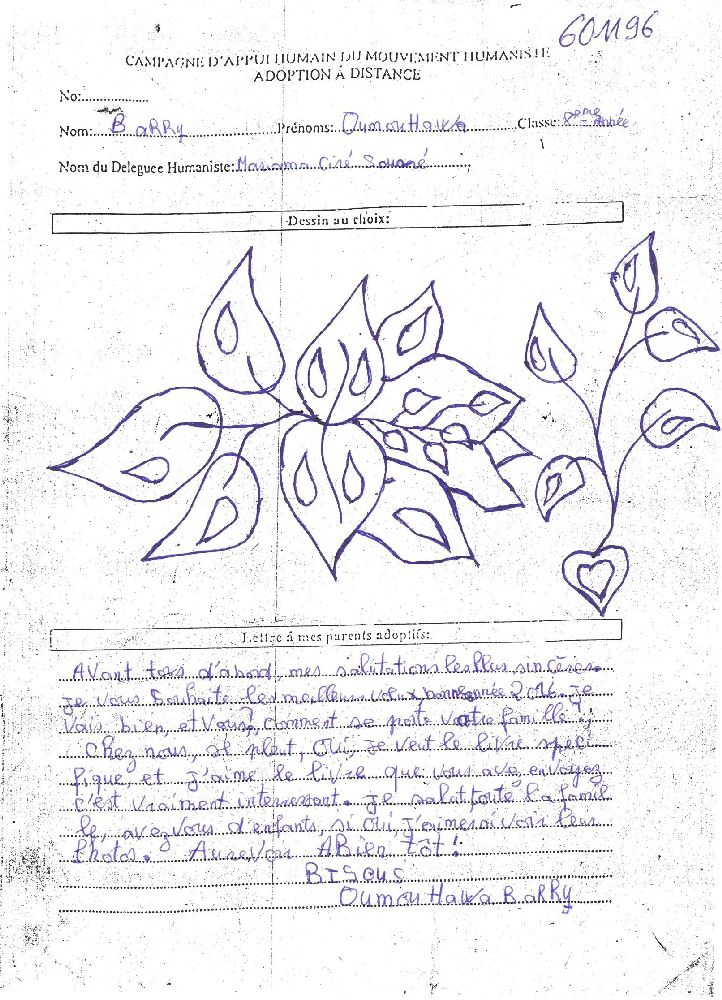 601196
CAMPAGNE D'APPUI HUMAIN DU MOUVEMENT HUMANISTE
ADOPTION À DISTANCE
No:..................
Nom: BaRRy Prénoms: Oumou Hawa Classe: 8ème Année
Nom du Deleguee Humaniste: Mariama Ciré Soumaré
Dessin au choix:
Lettre á mes parents adoptifs:
Avant tous d'abord, mes salutations les Plus sincères.
je vous souhaite les meilleurs voeux bonne année 2016. je
Vais bien, et vous?, comment se porte votre famille?,
chez nous, il pleut, Oui, je veut le livre speci
fique, et j'aime le livre que vous avez envoyez
c'est vraiment interressant. je salut toute la famil
le, avez vous d'enfants, si oui, j'aimerai voir leur
Photos. Aurevoir ABien tôt!
BISOUS
Oumou Hawa BaRRy